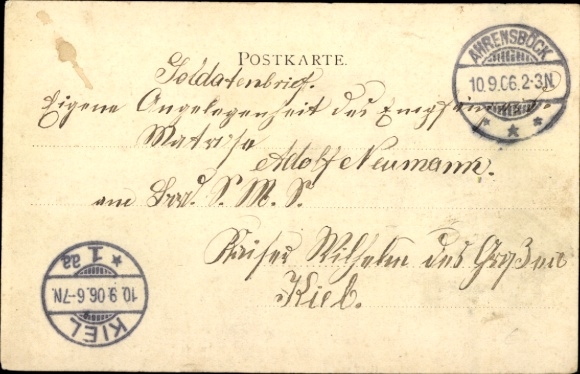 POSTKARTE.
Soldatenbrief.
Eigene Angelegenheit des Empfängers.
Matrose
Adolf Neumann.
am Bord. S. M. S.
Kaiser Wilhelm des Großen
Kiel.
AHRENSBÖCK
10.9.06.2-3N
* * *
KIEL
10.9.06.6-7N.
* 1 aa